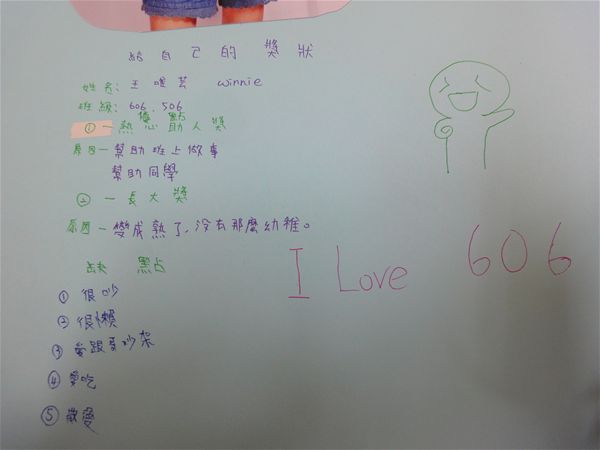 給自己的獎狀
姓名: 王唯芸 winnie
班級: 606. 506
優點
① 一熱心助人獎
原因一幫助班上做事
幫助同學
② 一長大獎
原因一變成熟了,沒有那麼幼稚。
I Love 606
缺點
① 很吵
② 很懶
③ 愛跟哥吵架
④ 愛吃
⑤